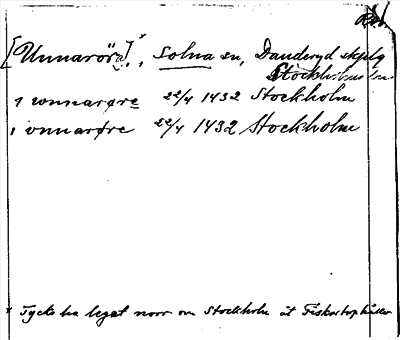 [Unnaröra]*, Solna sn, Danderyd skplg
Stockholms län
i wnnarøre 22/4 1432 Stockholm
i vnnarøre 22/4 1432 Stockholm
* Tycks ha legat norr om Stockholm åt Fiskartorphållet